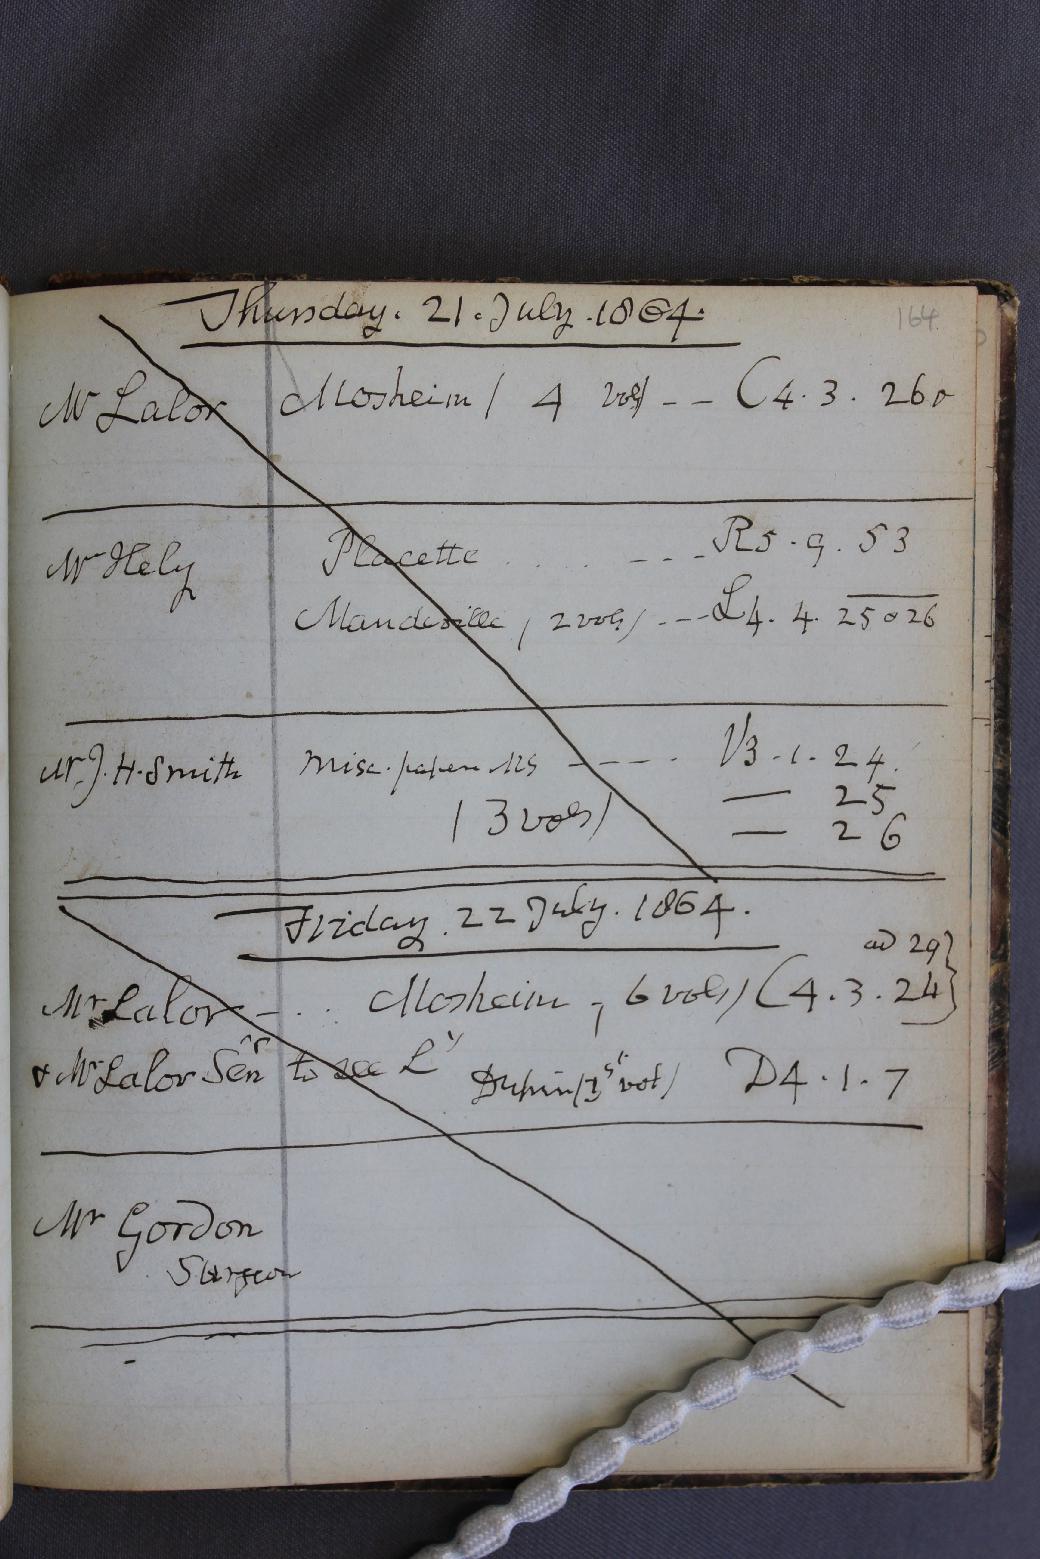 Thursday. 21. July. 1864.
164
Mr Lalor Mosheim / 4 vols -- C4.3.26
Mr Hely Placette .... --- R5.9.53
Mandeville, 2 vols) --- L4.4.25 26
Mr. J. H. Smith Misc. papers MS ---- V3.1.24.
— 25
(3 vols) — 26
Friday. 22 July. 1864.
ad 29}
Mr Lalor -... Mosheim, 6 vols) C4.3.24}
& Mr Lalor Senr to see Ly Dupin (1st vol) D4.1.7
Mr Gordon
Surgeon